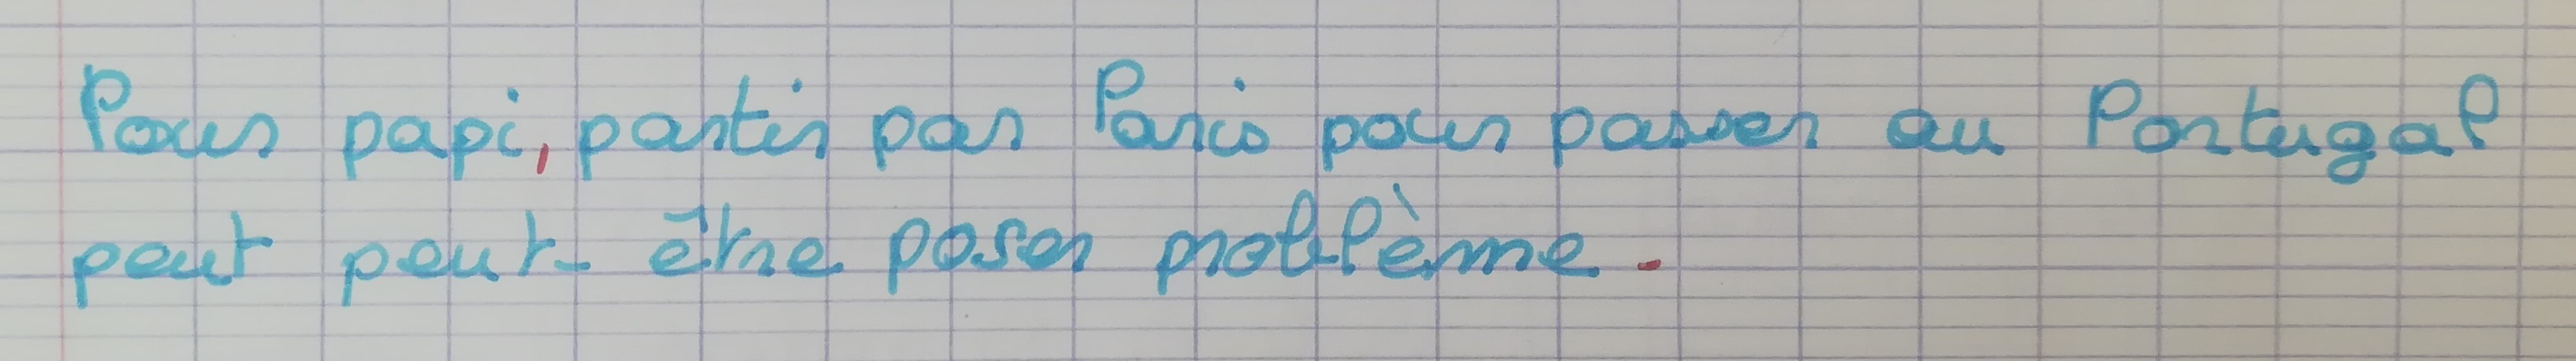 Pour papi, partir par Paris pour passer au Portugal
peut peut-être poser problème.